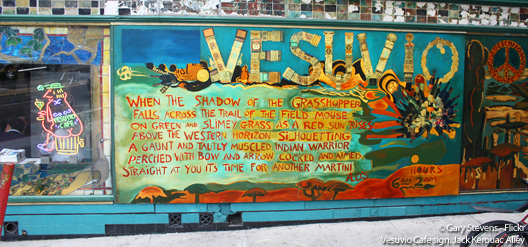 VESUVIO
WHEN THE SHADOW OF THE GRASSHOPPER
FALLS ACROSS THE TRAIL OF THE FIELD MOUSE
ON GREEN AND SLIMEY GRASS AS A RED SUN RISES
ABOVE THE WESTERN HORIZON SILHOUETTING
A GAUNT AND TAUTLY MUSCLED INDIAN WARRIOR
PERCHED WITH BOW AND ARROW COCKED AND AIMED
STRAIGHT AT YOU ITS TIME FOR ANOTHER MARTINI
HOURS
6AM 2AM
© Gary Stevens - Flickr
Vesuvio Cafe sign, Jack Kerouac Alley